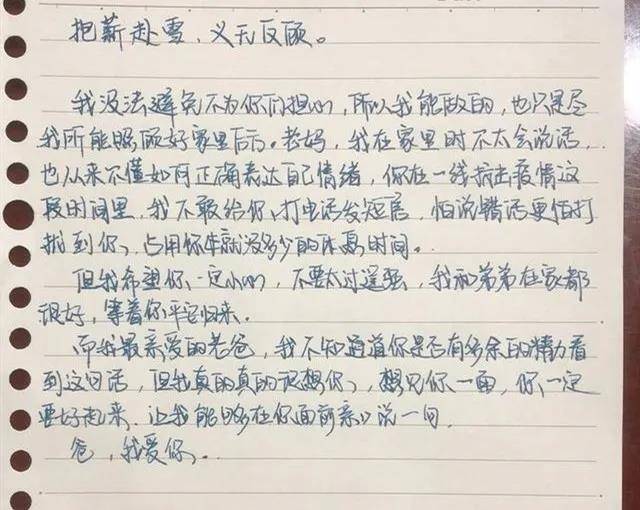 抱薪赴雪，义无反顾。
我没法避免不为你们担心，所以我能做的，也只是尽
我所能照顾好家里后方。老妈，我在家里时不太会说话，
也从来不懂如何正确表达自己情绪，你在一线抗击疫情这
段时间里，我不敢给你打电话发短信，怕说错话更怕打
扰到你，占用你本就没多少的休息时间。
但我希望你一定小心，不要太过逞强，我和弟弟在家都
很好，等着你平安归来。
而我最亲爱的老爸，我不知道你是否有多余的精力看
到这句话，但我真的真的很想你，想见你一面，你一定
要好起来，让我能够在你面前亲口说一句，
爸，我爱你。